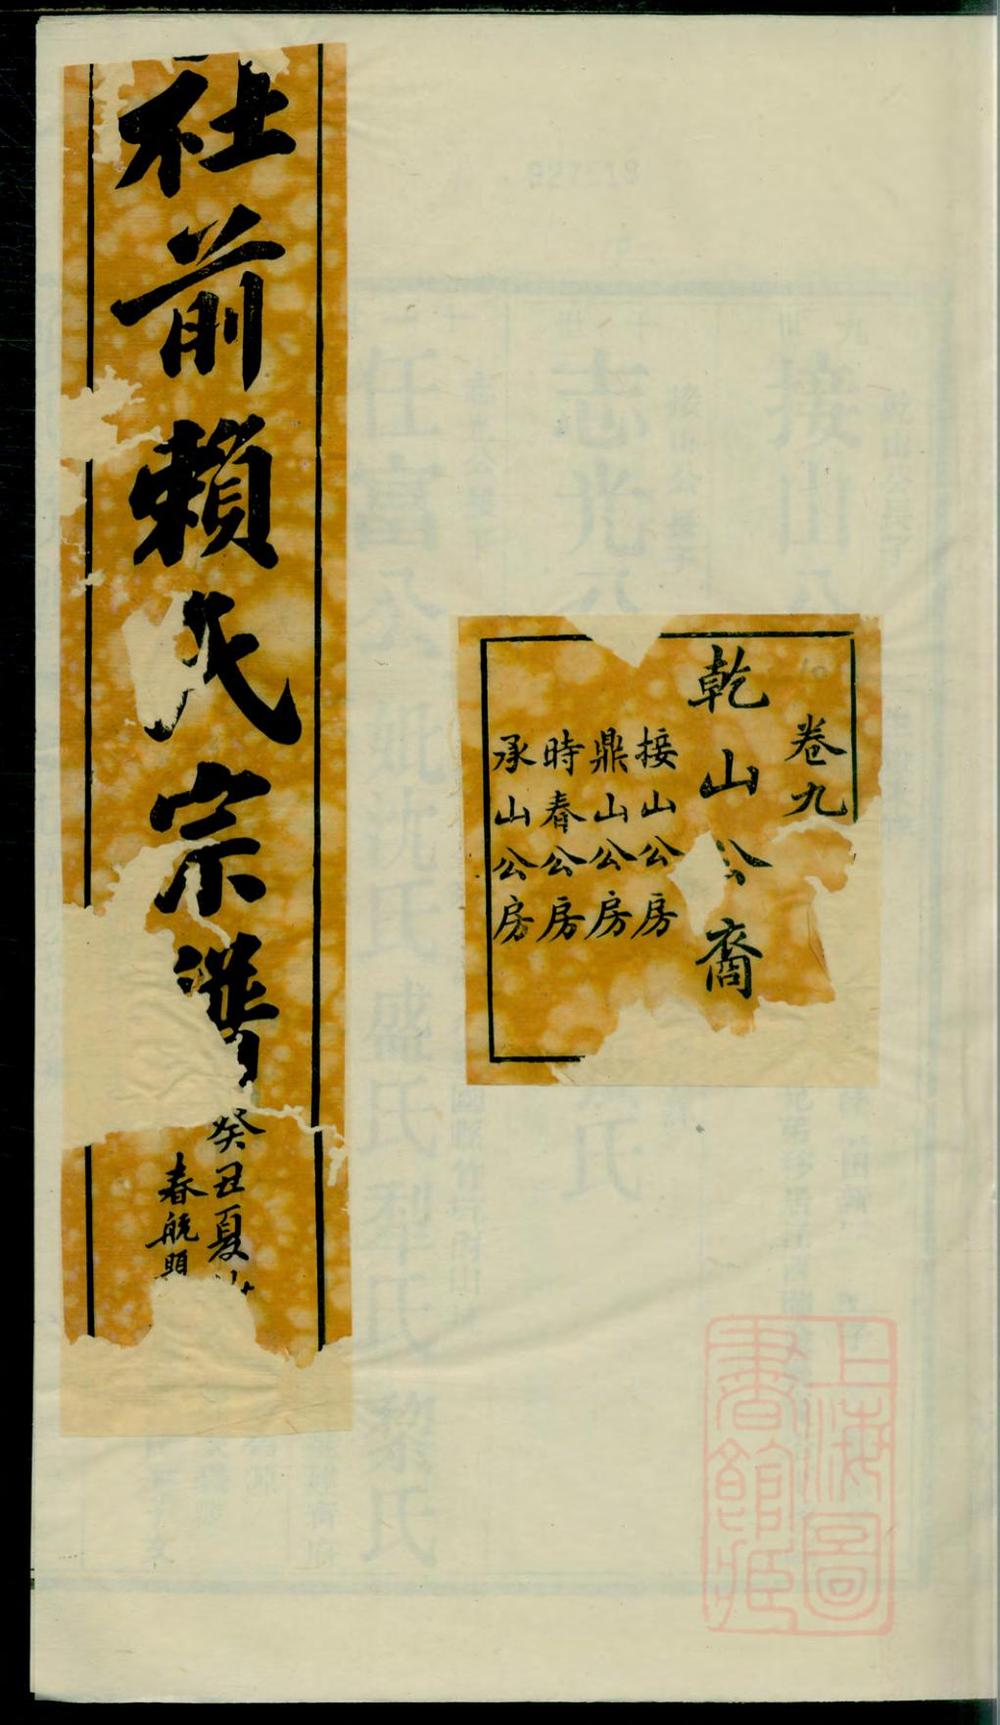 社前賴氏宗譜
癸丑夏
春航題
卷九
乾山公裔
接山公房
鼎山公房
時春公房
承山公房
上海圖書館藏